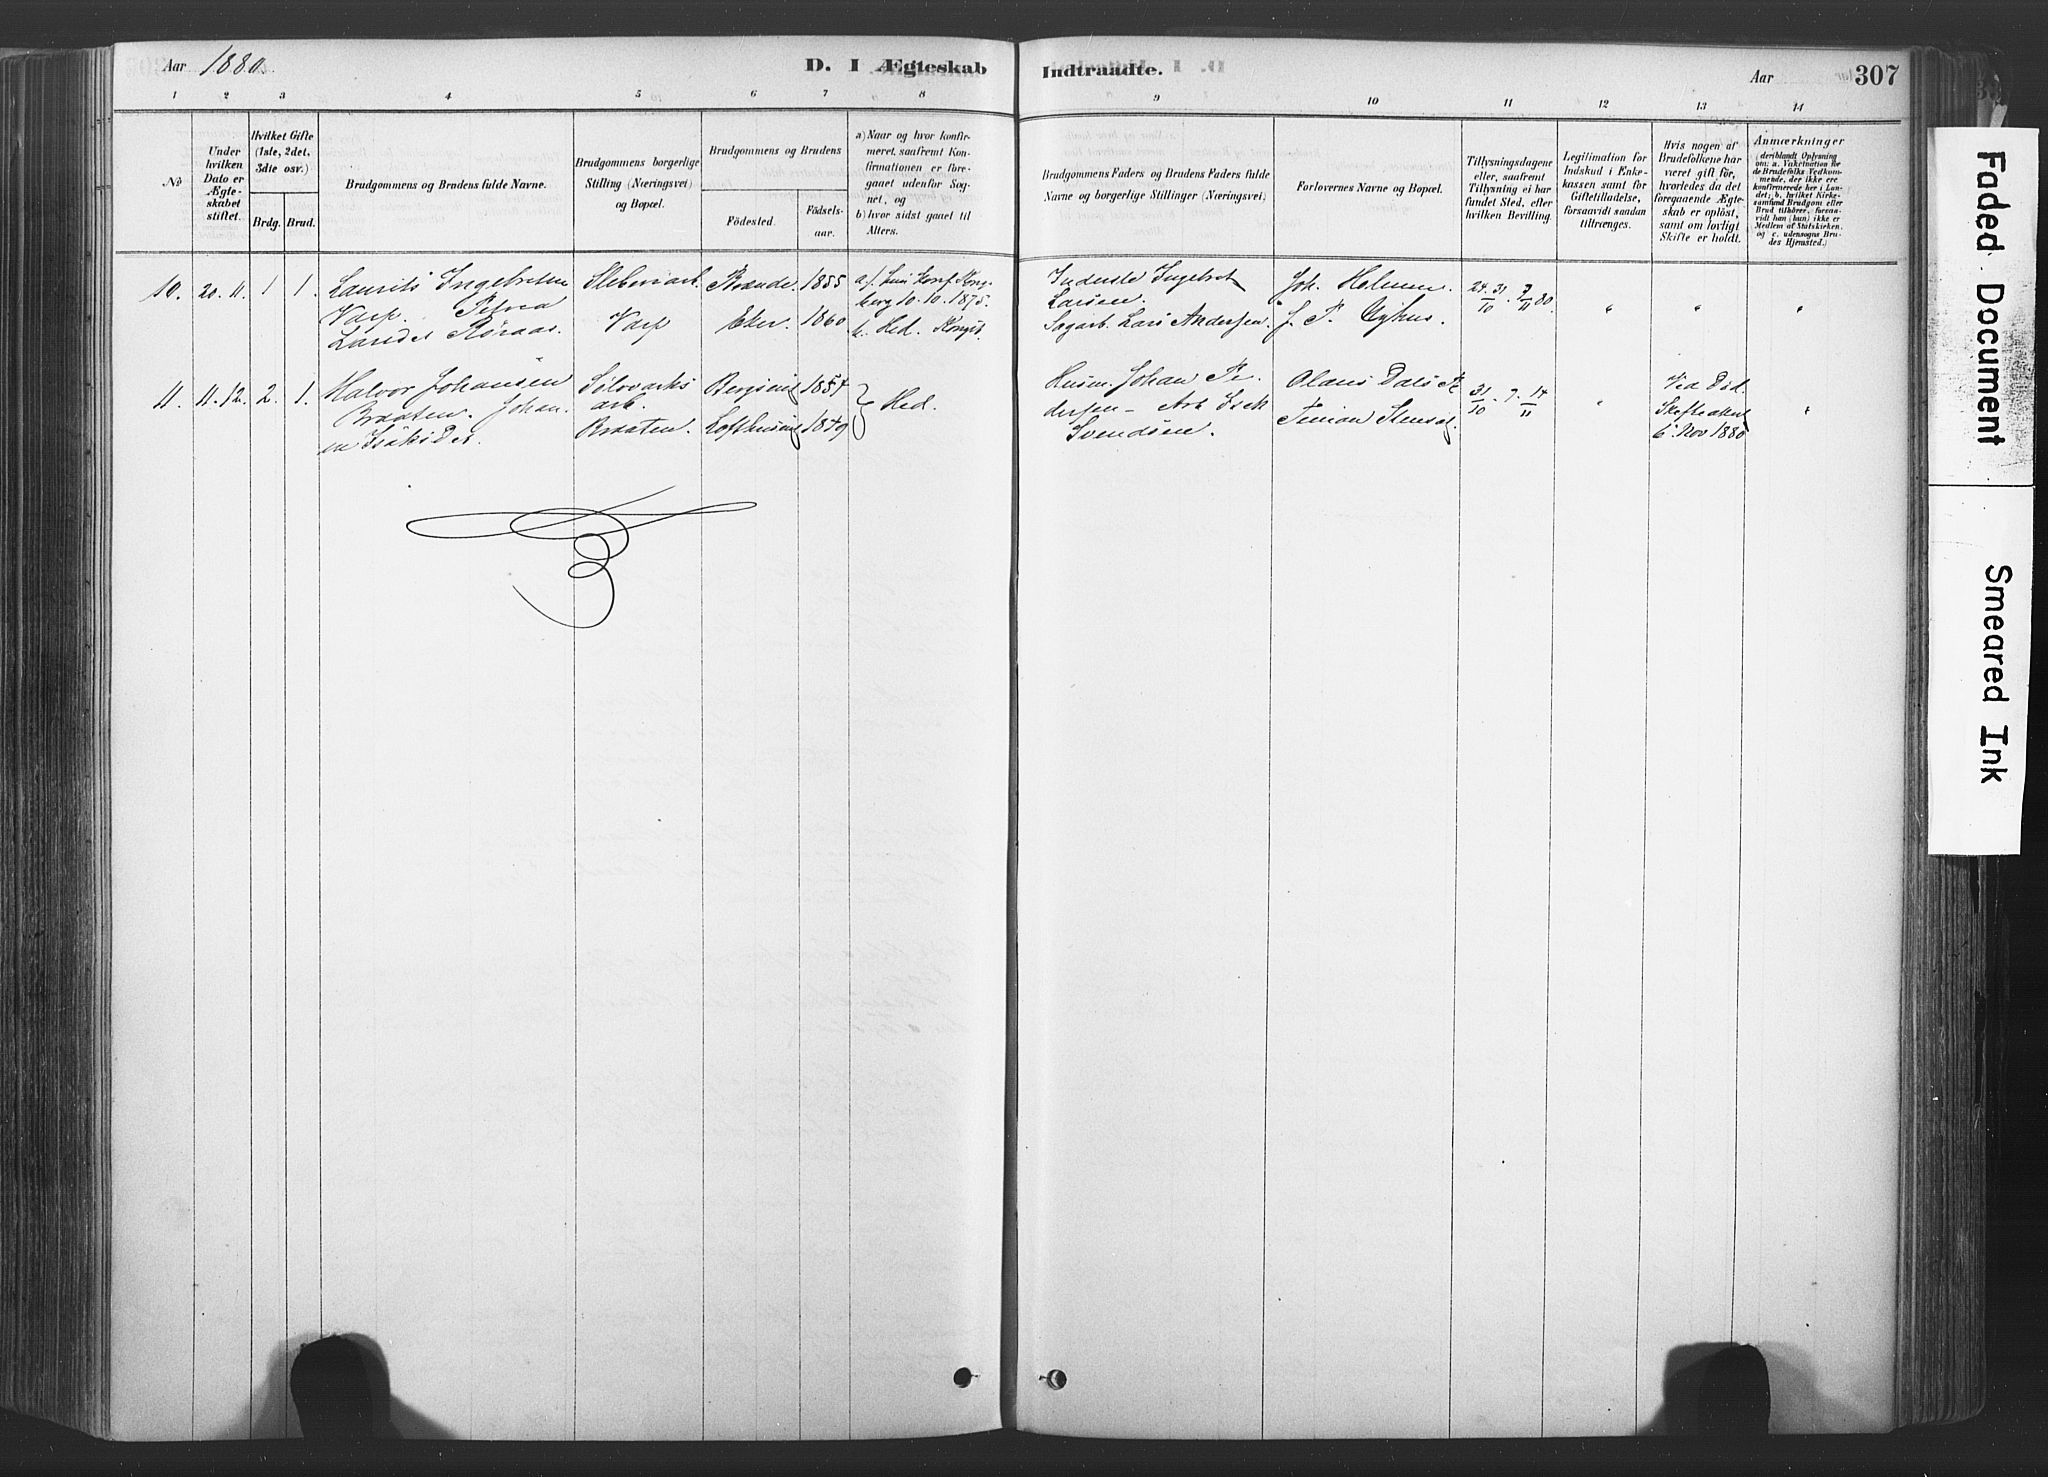 Aar 1880.
D. I Ægteskab Indtraadte.
Aar 307
1 2 3 4 5 6 7 8 9 10 11 12 13 14
No
Under hvilken Dato er Ægteskabet stiftet.
Hvilket Gifte (1ste, 2det, 3die osv.)
Brdg. Brud.
Brudgommens og Brudens fulde Navne.
Brudgommens borgerlige Stilling (Næringsvei) og Bopæl.
Brudgommens og Brudens
Födested.
Födselsaar.
a) Naar og hvor konfirmeret, saafremt Konfirmationen er foregaaet udenfor Sognet, og
b) hvor sidst gaaet til Alters.
Brudgommens Faders og Brudens Faders fulde Navne og borgerlige Stillinger (Næringsvei)
Forlovernes Navne og Bopæl.
Tillysningsdagene eller, saafremt Tillysning ei har fundet Sted, efter hvilken Bevilling.
Legitimation for Indskud i Enkekassen samt for Giftetilladelse, forsaavidt saadan tiltrænges.
Hvis nogen af Brudefolkene har været gift för, hvorledes da det foregaaende Ægteskab er oplöst, samt om lovligt Skifte er holdt.
Anmærkninger
(deriblandt Oplysning om: a. Vakcination for de Brudefolks Vedkommende, der ikke ere konfirmerede her i Landet; b. hvilket Kirkesamfund Brudgom eller Brud tilhörer, forsaavidt han (hun) ikke er Medlem af Statskirken, og c. udensogns Brudes Hjemsted.)
10. 20. 11. 1 1. Laurits Ingebretsen
Varp. Petrea
Larsdet Röraas.
Varp
Eker.
1855
1860
berg 10.10.1875.
b. Hed. Kongsb.
Inderste Ingebret
Larsen.
Sagarb. Lars Andersen.
Joh. Helmen
24. 31. 7/11 80.
" " "
11. 11. 12. 2. 1. Halvor Johansen
Braaten. Johan
Sölvverks
arb.
Braaten.
Lofthuseie
1854
1849
Hed.
Husm. Johan Pe
dersen
Svendsen.
Simon Stensei
31/10. 7. 14/11
"
Ved Död.
6. Nov 1880
"
Faded Document
Smeared Ink